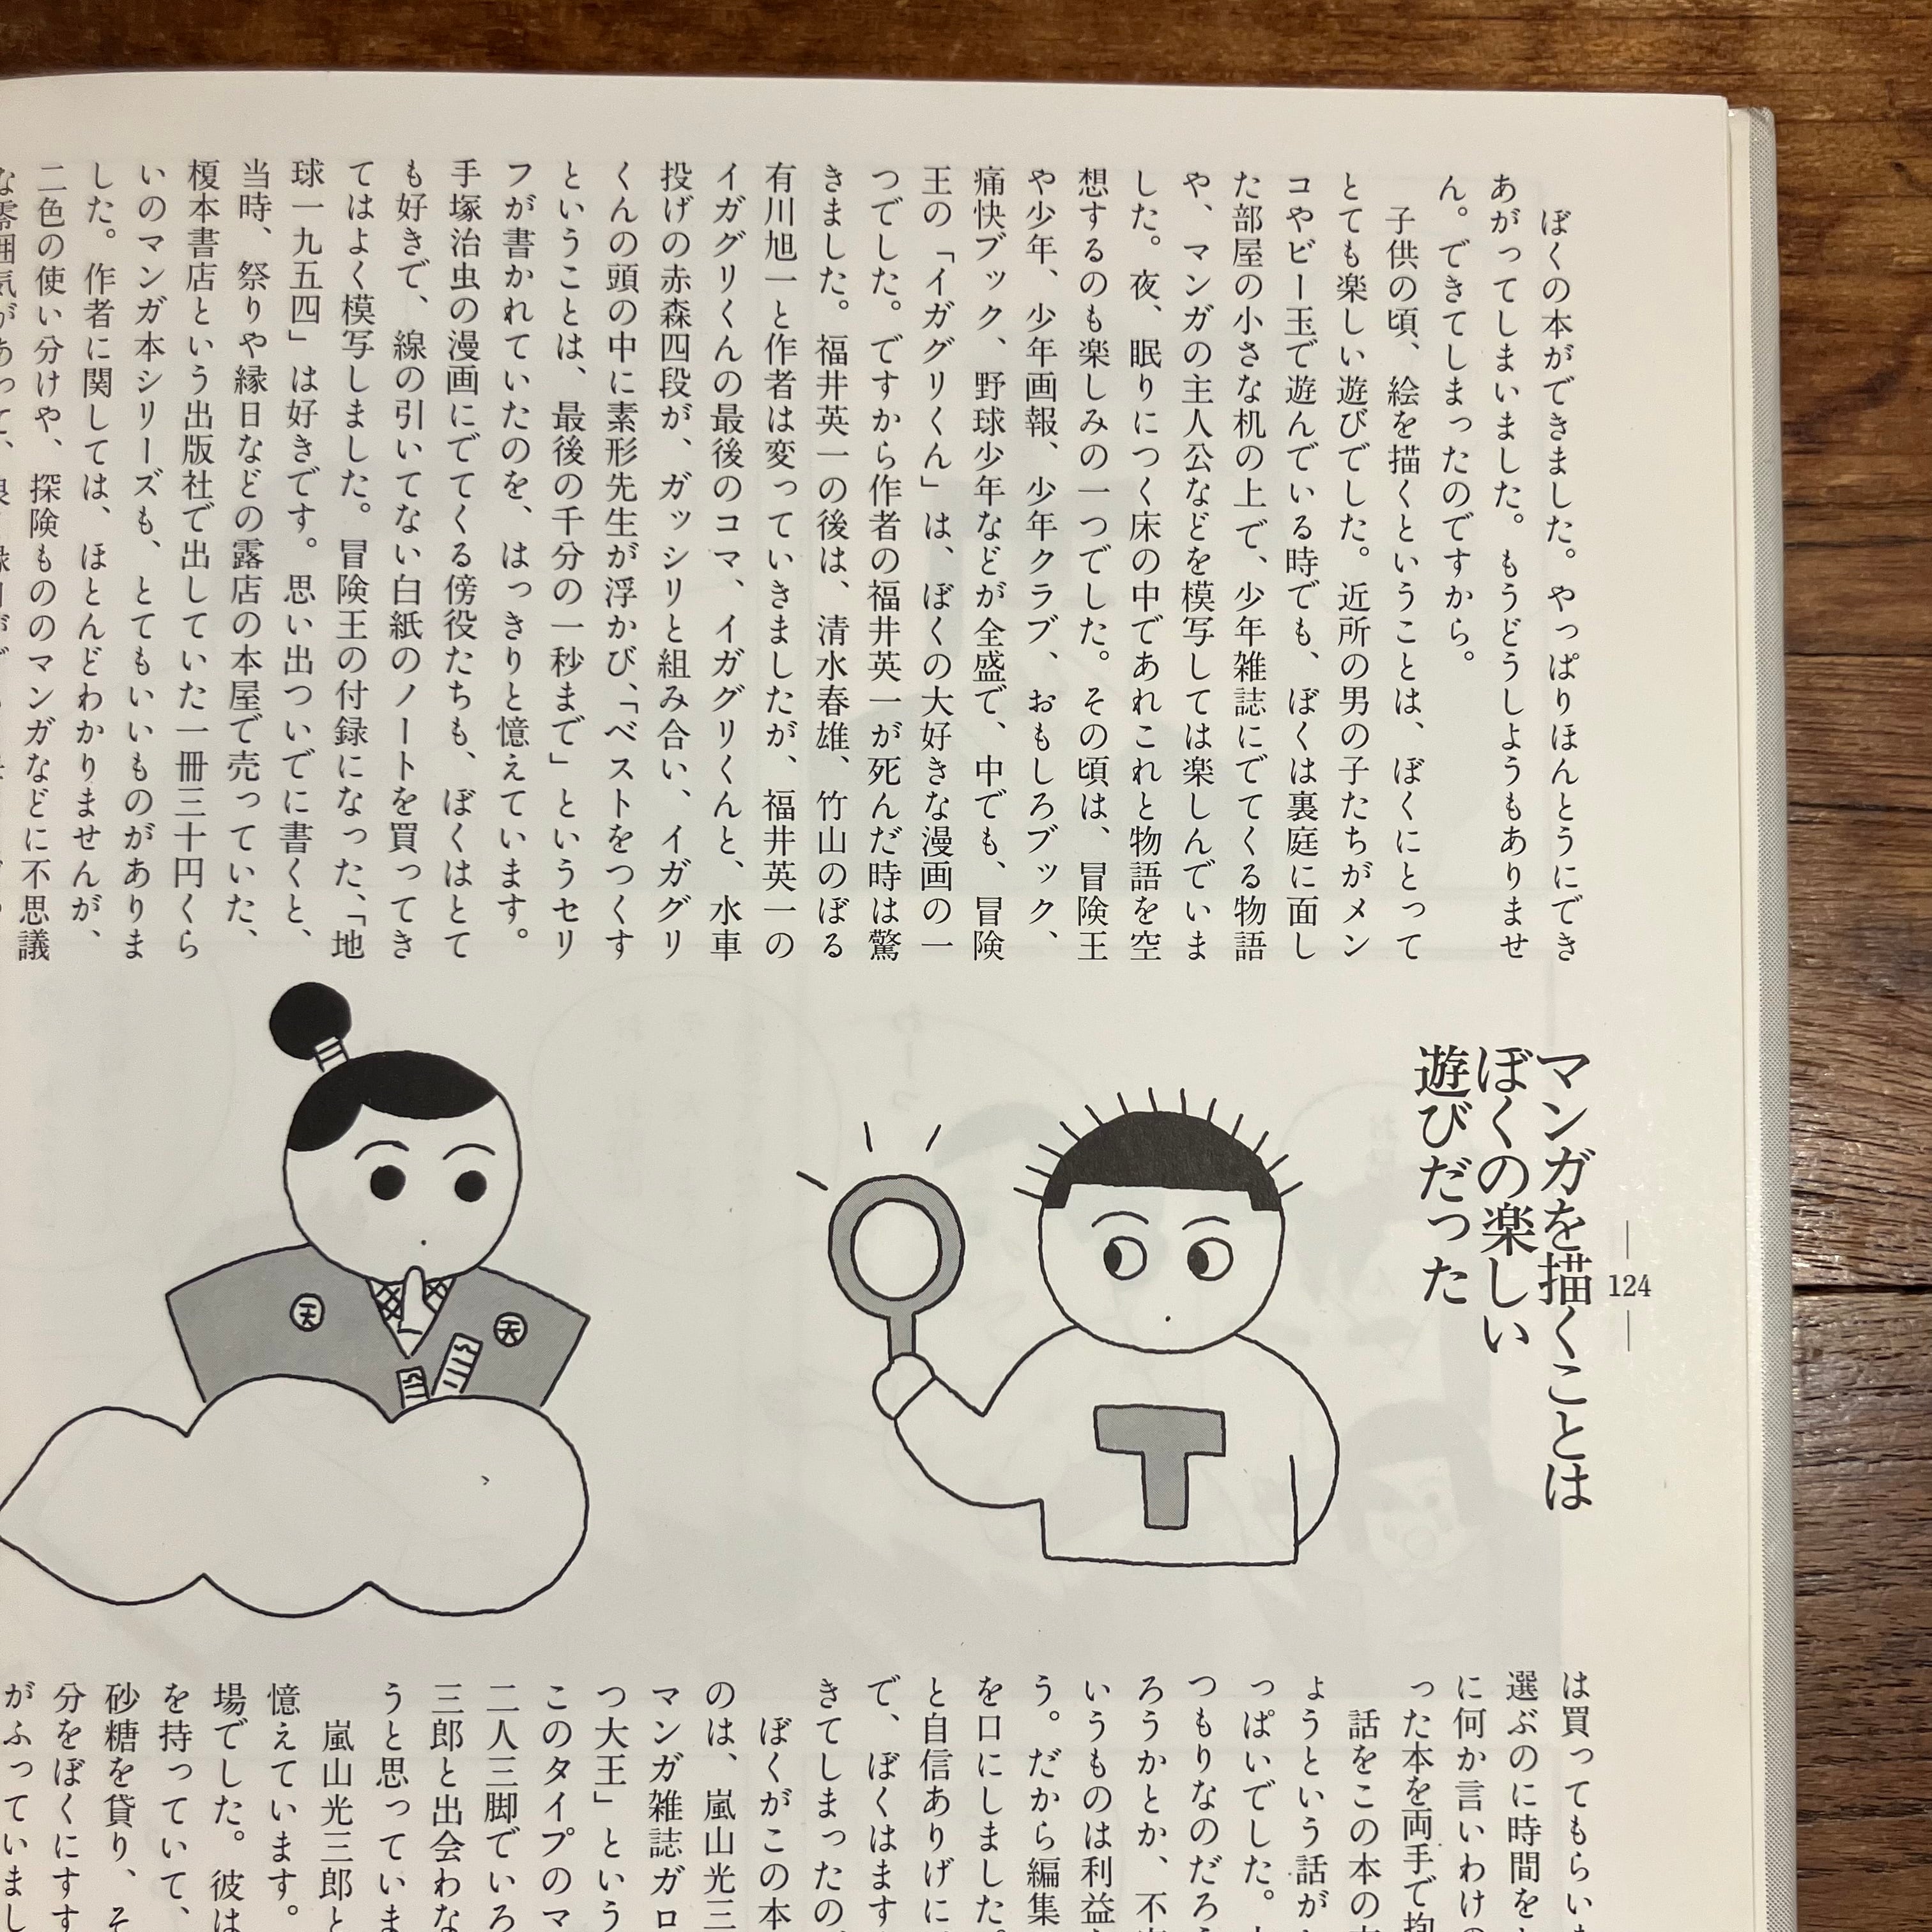 マンガを描くことは
ぼくの楽しい
遊びだった
124
ぼくの本ができました。やっぱりほんとうにでき
あがってしまいました。もうどうしようもありませ
ん。できてしまったのですから。
子供の頃、絵を描くということは、ぼくにとって
とても楽しい遊びでした。近所の男の子たちがメン
コやビー玉で遊んでいる時でも、ぼくは裏庭に面し
た部屋の小さな机の上で、少年雑誌にでてくる物語
や、マンガの主人公などを模写しては楽しんでいま
した。夜、眠りにつく床の中であれこれと物語を空
想するのも楽しみの一つでした。その頃は、冒険王
や少年、少年画報、少年クラブ、おもしろブック、
痛快ブック、野球少年などが全盛で、中でも、冒険
王の「イガグリくん」は、ぼくの大好きな漫画の一
つでした。ですから作者の福井英一が死んだ時は驚
きました。福井英一の後は、清水春雄、竹山のぼる
有川旭一と作者は変っていきましたが、福井英一の
イガグリくんの最後のコマ、イガグリくんと、水車
投げの赤森四段が、ガッシリと組み合い、イガグリ
くんの頭の中に素形先生が浮かび、「ベストをつくす
ということは、最後の千分の一秒まで」というセリ
フが書かれていたのを、はっきりと憶えています。
手塚治虫の漫画にでてくる傍役たちも、ぼくはとて
も好きで、線の引いてない白紙のノートを買ってき
てはよく模写しました。冒険王の付録になった、「地
球一九五四」は好きです。思い出ついでに書くと、
当時、祭りや縁日などの露店の本屋で売っていた、
榎本書店という出版社で出していた一冊三十円くら
いのマンガ本シリーズも、とてもいいものがありま
した。作者に関しては、ほとんどわかりませんが、
二色の使い分けや、探険もののマンガなどに不思議
天
天
T
は買ってもらい
選ぶのに時間を
に何か言いわけの
った本を両手で抱
話をこの本の
ようという話が
っぱいでした。
つもりなのだろ
ろうかとか、不
いうものは利益
う。だから編集
を口にしました。
と自信ありげに
で、ぼくはます
きてしまったの
ぼくがこの本
のは、嵐山光三
マンガ雑誌ガロ
つ大王」という
このタイプのマ
二人三脚でいろ
三郎と出会わな
うと思っていま
嵐山光三郎と
憶えています。
場でした。彼は
を持っていて、
砂糖を貸り、そ
分をぼくにすす
がふっていまし